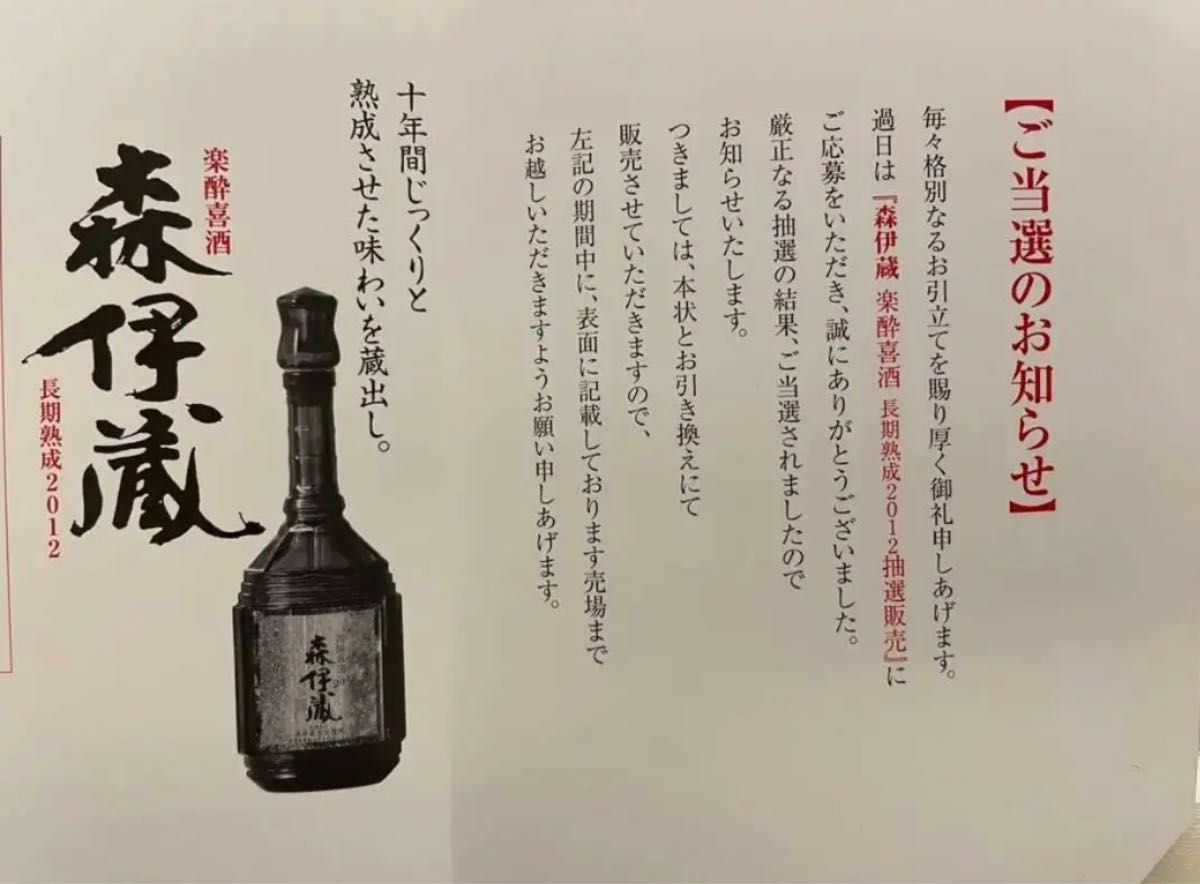 【ご当選のお知らせ】
毎々格別なるお引立てを賜り厚く御礼申しあげます。
過日は『森伊蔵 楽酔喜酒 長期熟成2012抽選販売』に
ご応募をいただき、誠にありがとうございました。
厳正なる抽選の結果、ご当選されましたので
お知らせいたします。
つきましては、本状とお引き換えにて
販売させていただきますので、
左記の期間中に、表面に記載しております売場まで
お越しいただきますようお願い申しあげます。
十年間じっくりと
熟成させた味わいを蔵出し。
楽酔喜酒
森伊蔵
長期熟成2012
森伊蔵